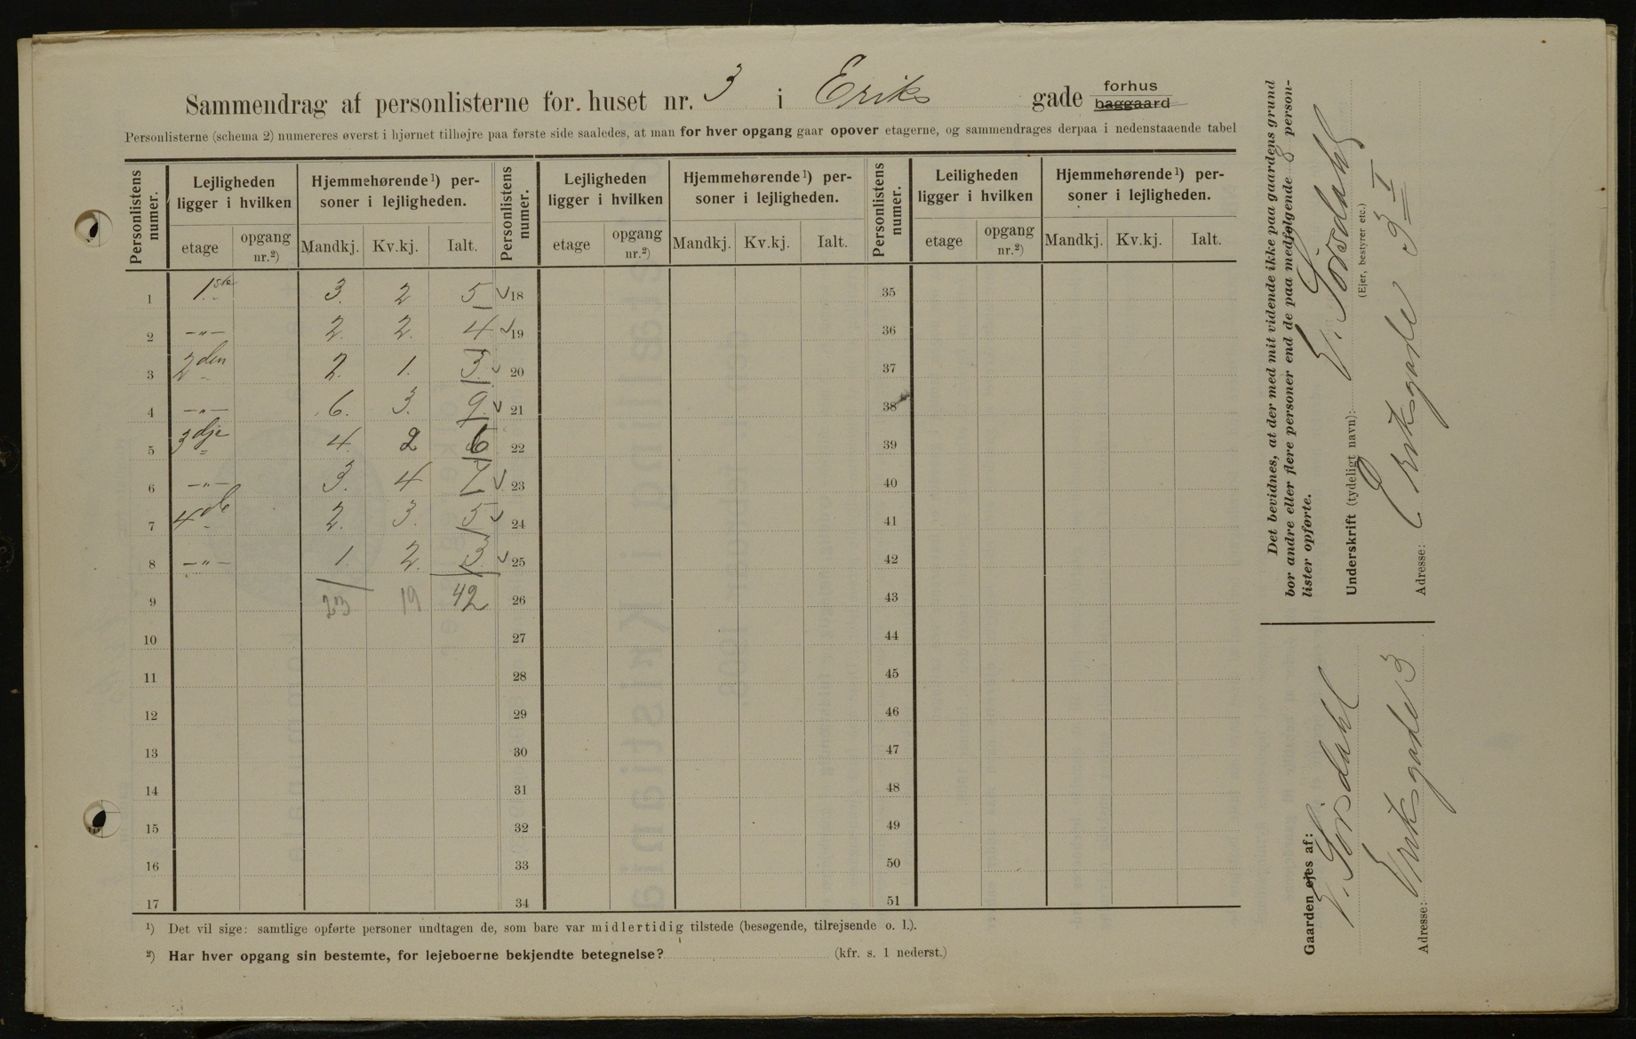 Sammendrag af personlisterne for huset nr. 3 i Eriks gade forhus baggaard
Personlisterne (schema 2) numereres øverst i hjørnet tilhøjre paa første side saaledes, at man for hver opgang gaar opover etagerne, og sammendrages derpaa i nedenstaaende tabel
Personlistens numer. Lejligheden ligger i hvilken Hjemmehørende¹) personer i lejligheden. Personlistens numer. Lejligheden ligger i hvilken Hjemmehørende¹) personer i lejligheden. Personlistens numer. Leiligheden ligger i hvilken Hjemmehørende¹) personer i lejligheden.
etage opgang nr.²) Mandkj. Kv.kj. Ialt. etage opgang nr.²) Mandkj. Kv.kj. Ialt. etage opgang nr.²) Mandkj. Kv.kj. Ialt.
1 1ste 3. 2 5 18 35
2 —"— 2. 2. 4 19 36
3 2den 2. 1. 3. 20 37
4 —"— 6. 3. 9. 21 38
5 3dje 4. 2 6 22 39
6 —"— 3. 4 7 23 40
7 4de 2. 3. 5 24 41
8 —"— 1. 2. 3 25 42
9 23 19 42 26 43
10 27 44
11 28 45
12 29 46
13 30 47
14 31 48
15 32 49
16 33 50
17 34 51
¹) Det vil sige: samtlige opførte personer undtagen de, som bare var midlertidig tilstede (besøgende, tilrejsende o. l.).
²) Har hver opgang sin bestemte, for lejeboerne bekjendte betegnelse? (kfr. s. 1 nederst.)
Det bevidnes, at der med mit vidende ikke paa gaardens grund
bor andre eller flere personer end de paa medfølgende 8 person-
lister opførte.
Underskrift (tydeligt navn):
(Ejer, bestyrer etc.)
Adresse: Eriksgade 3 I
Gaarden ejes af:
Adresse: Eriksgade 3